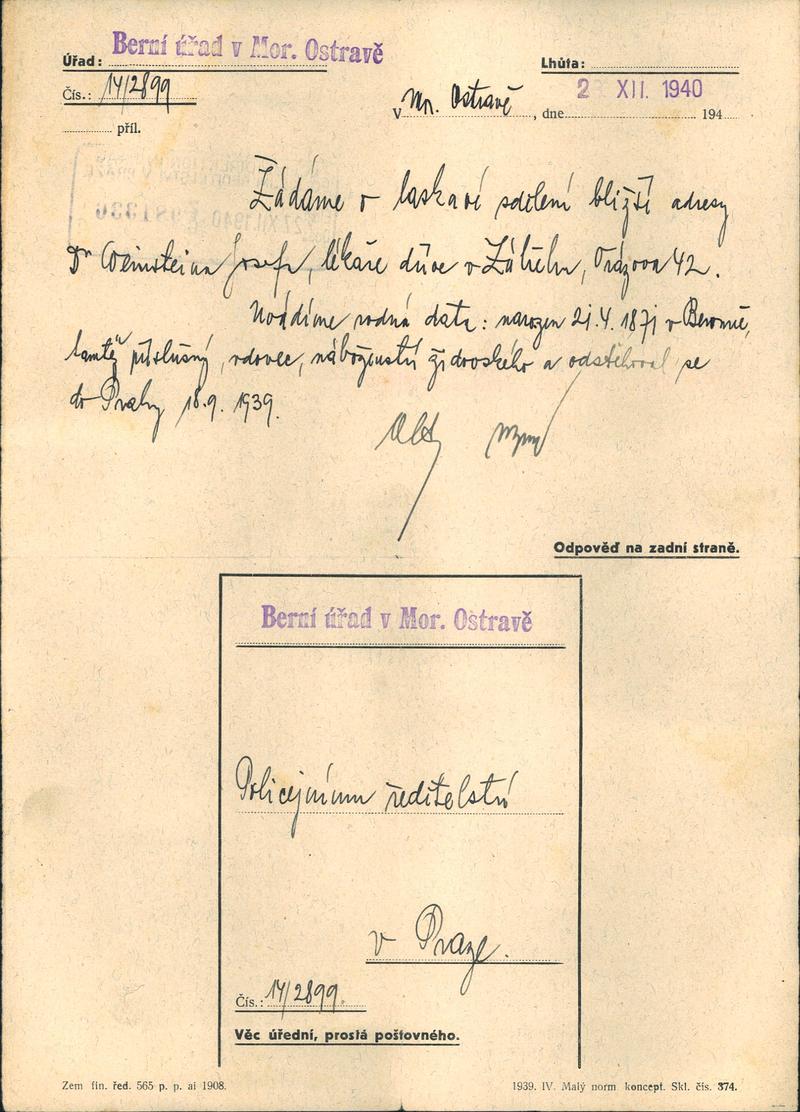 Úřad: Berní úřad v Mor. Ostravě
Lhůta:
Čís.: 14/2899
V Mor. Ostravě, dne 2 XII. 1940 194
příl.
Žádáme o laskavé sdělení bližší adresy
Dr Weinsteina Josefa, lékaře dříve v Zábřehu,
42.
Uvádíme rodná data: narozen 21.4. 1871 v Berouně,
tamtéž příslušný, vdovec, náboženství židovského a odstěhoval se
do Prahy 18.9. 1939.
Odpověď na zadní straně.
Berní úřad v Mor. Ostravě
Policejnímu ředitelství
v Praze.
Čís.: 14/2899.
Věc úřední, prostá poštovného.
Zem fin. řed. 565 p. p. ai 1908.
1939. IV. Malý norm koncept. Skl. čís. 374.